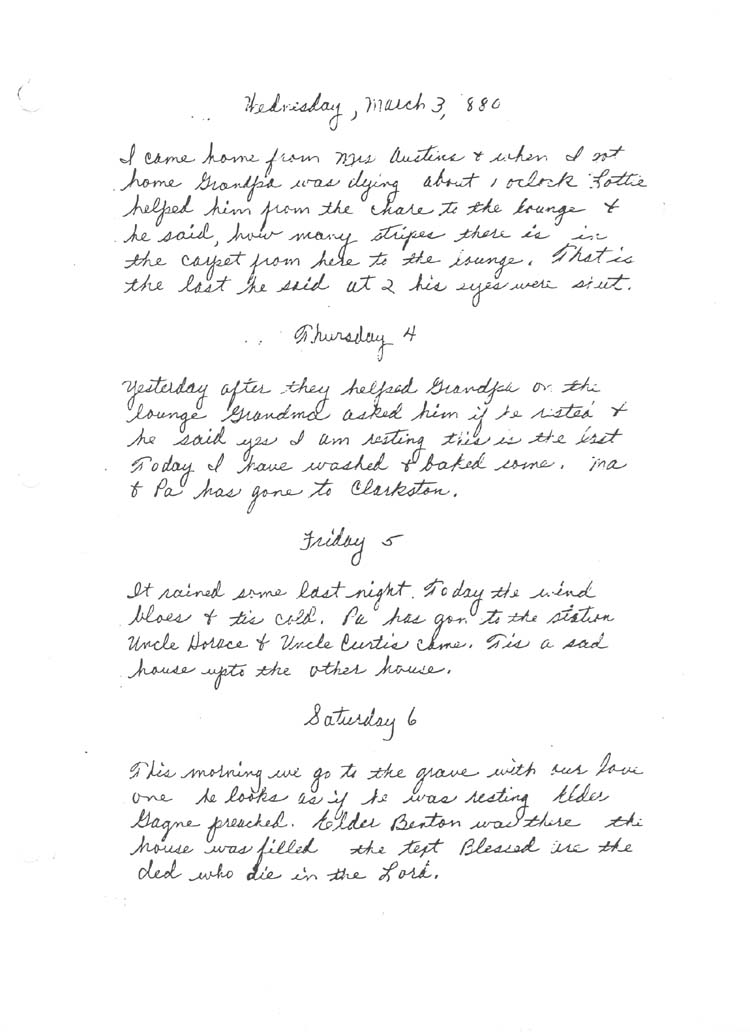 Wednesday, March 3, 880
I came home from Mrs Austins & when I got
home Grandpa was dying about 1 oclock Lottie
helped him from the chare to the lounge &
he said, how many stripes there is in
the carpet from here to the lounge. That is
the last he said at 2 his eyes were shut.
Thursday 4
Yesterday after they helped Grandpa on the
lounge Grandma asked him if he risted &
he said yes I am resting this is the last
Today I have washed & baked some. Ma
& Pa has gone to Clarkston.
Friday 5
It rained some last night. Today the wind
bloes & tis cold. Pa has gon to the station
Uncle Horace & Uncle Curtis came. Tis a sad
house upto the other house.
Saturday 6
This morning we go to the grave with our love
one he looks as if he was resting Elder
Gagne preached. Elder Benton was there the
house was filled the text Blessed are the
ded who die in the Lord.